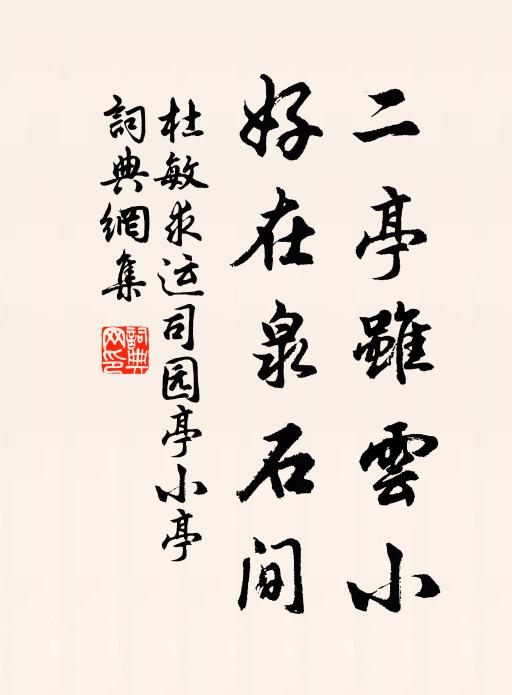 二亭雖雲小
好在泉石间
杜敏求运司园亭小亭
詞典網集
詞典
网印